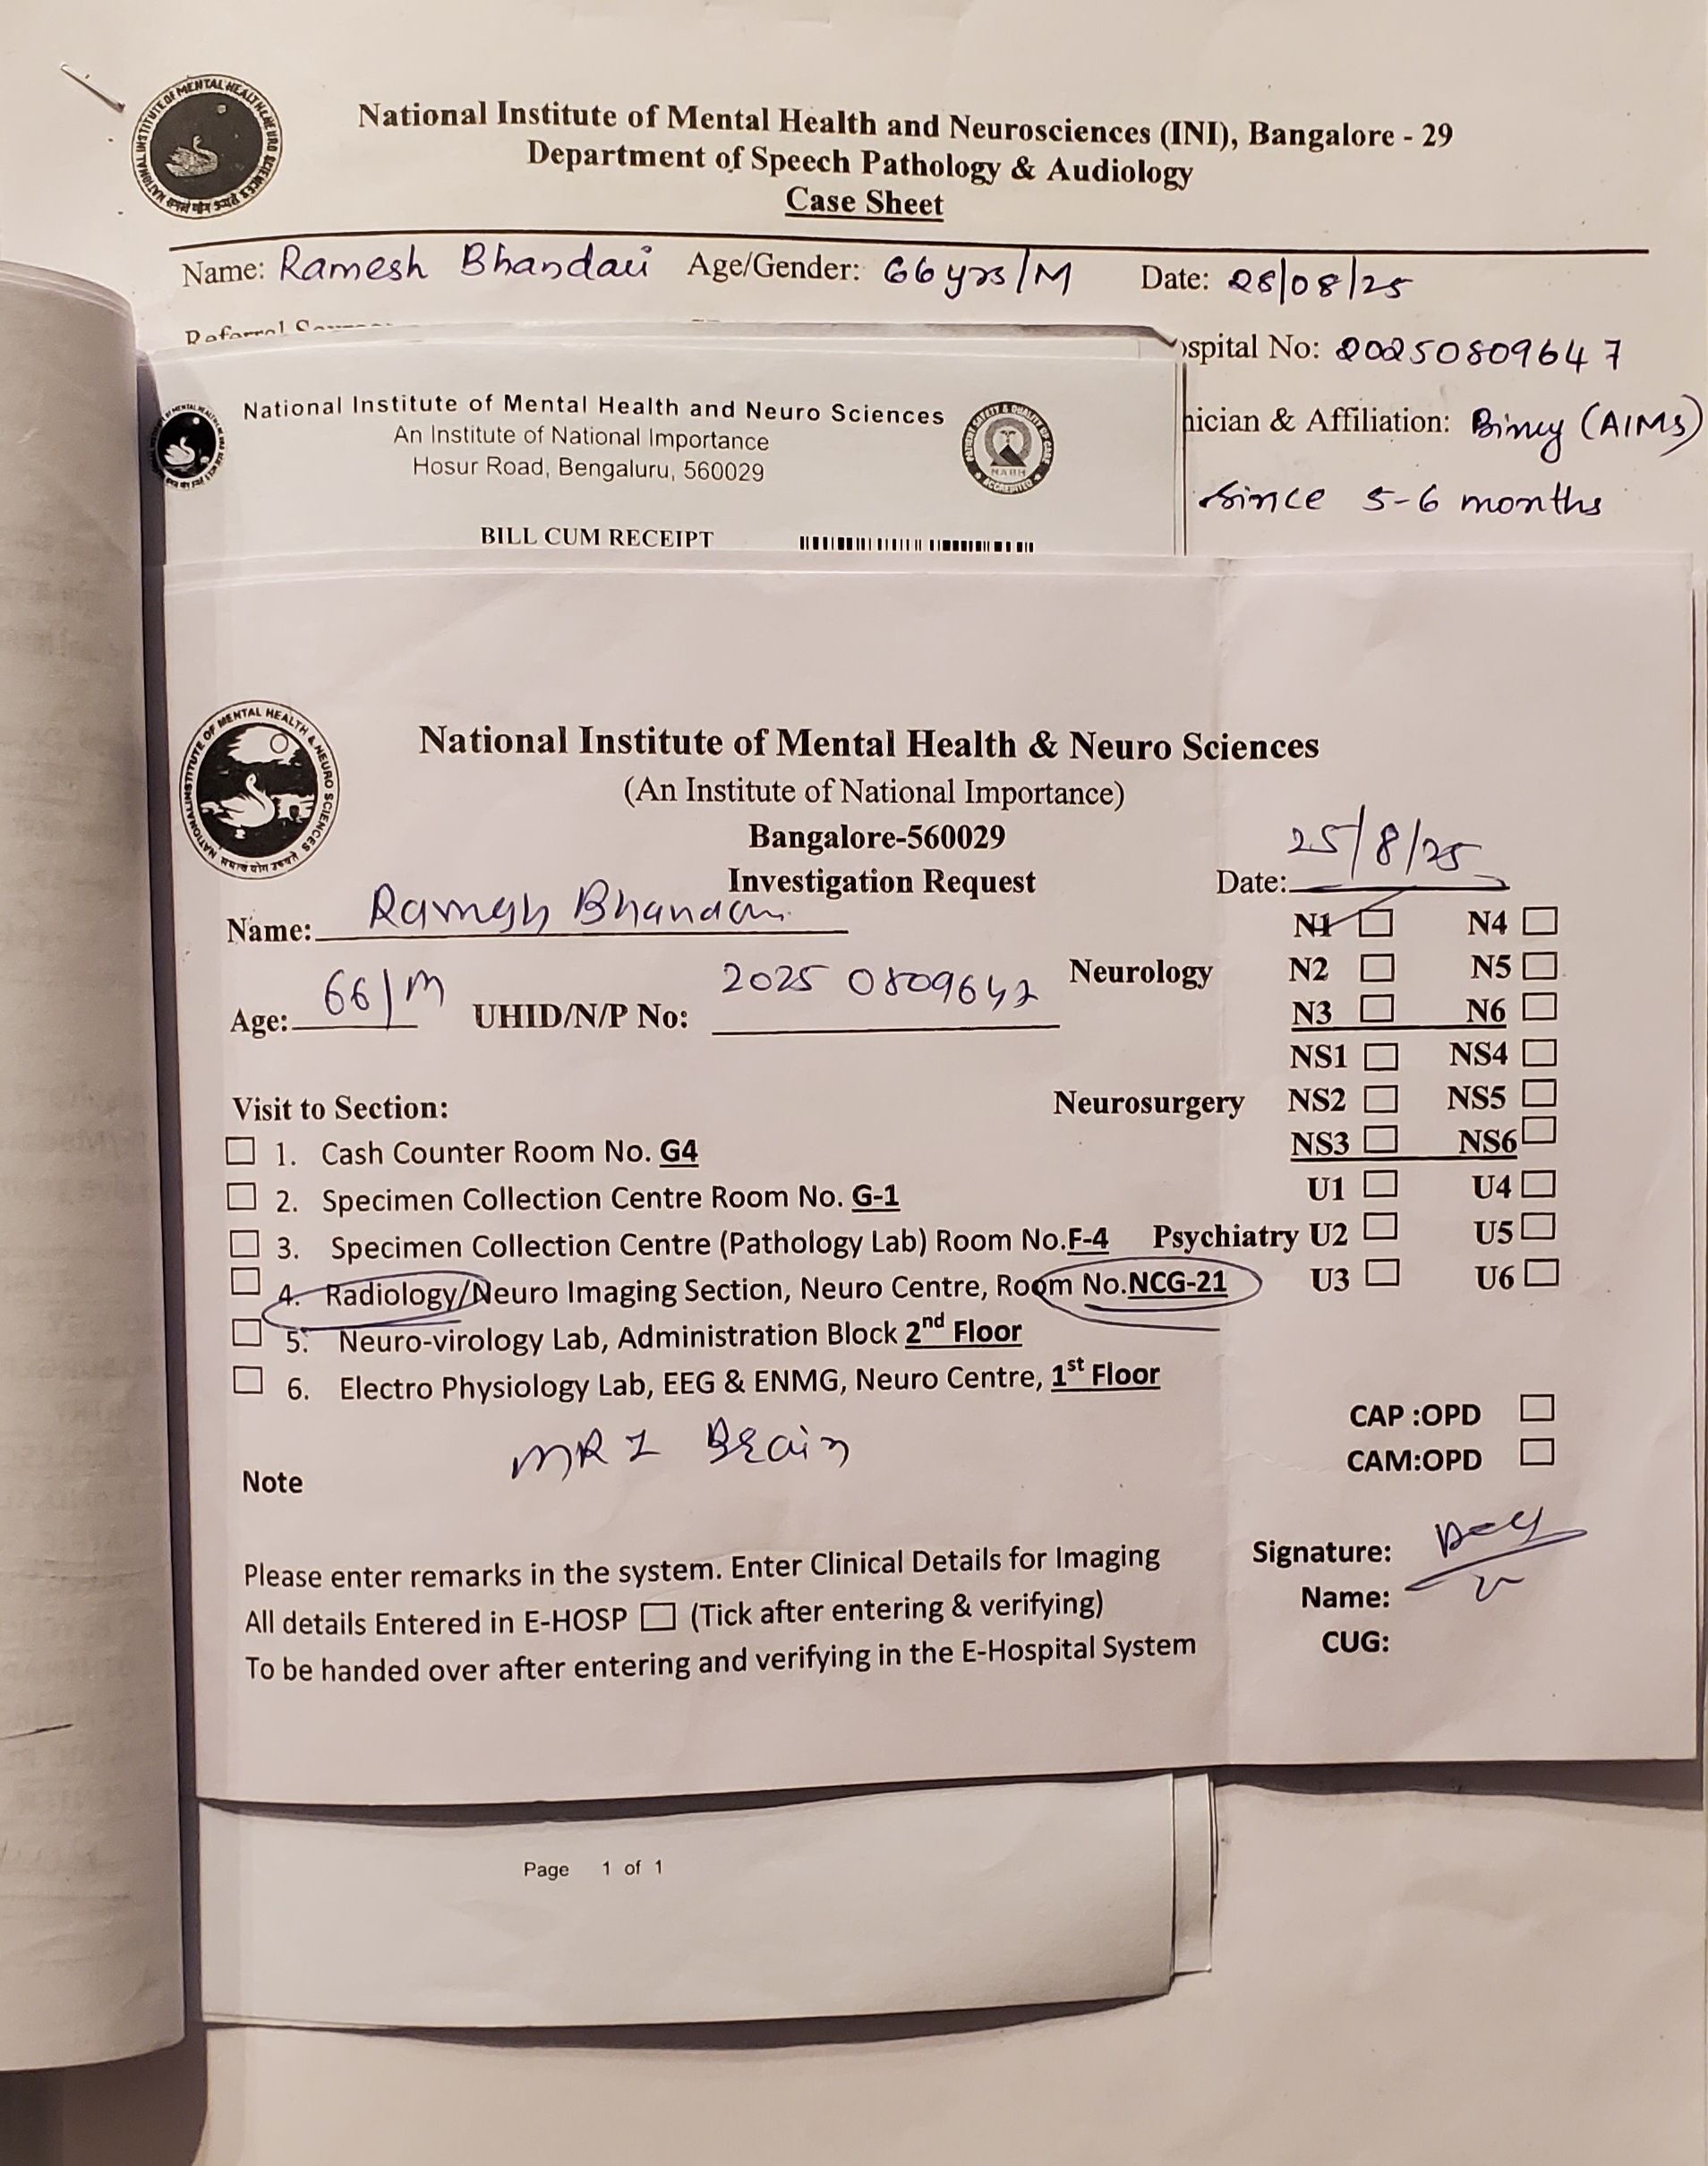 National Institute of Mental Health and Neurosciences (INI), Bangalore - 29
Department of Speech Pathology & Audiology
Case Sheet
Name: Ramesh Bhandari Age/Gender: 66 yrs/M Date: 28/08/25
Referral
ospital No: 20250809647
nician & Affiliation: Biney (AIMS)
since 5-6 months
National Institute of Mental Health and Neuro Sciences
An Institute of National Importance
Hosur Road, Bengaluru, 560029
BILL CUM RECEIPT
NATIONAL INSTITUTE OF MENTAL HEALTH & NEURO SCIENCES
National Institute of Mental Health & Neuro Sciences
(An Institute of National Importance)
Bangalore-560029
Investigation Request
Date: 25/8/25
Name: Ramesh Bhandari
Age: 66/M UHID/N/P No: 20250809647
Neurology
N1 N4
N2 N5
N3 N6
Neurosurgery
NS1 NS4
NS2 NS5
NS3 NS6
Psychiatry
U1 U4
U2 U5
U3 U6
Visit to Section:
1. Cash Counter Room No. G4
2. Specimen Collection Centre Room No. G-1
3. Specimen Collection Centre (Pathology Lab) Room No.F-4
4. Radiology/Neuro Imaging Section, Neuro Centre, Room No.NCG-21
5. Neuro-virology Lab, Administration Block 2nd Floor
6. Electro Physiology Lab, EEG & ENMG, Neuro Centre, 1st Floor
CAP :OPD
CAM:OPD
Note MRI Brain
Please enter remarks in the system. Enter Clinical Details for Imaging
All details Entered in E-HOSP (Tick after entering & verifying)
To be handed over after entering and verifying in the E-Hospital System
Signature:
Name:
CUG:
Page 1 of 1